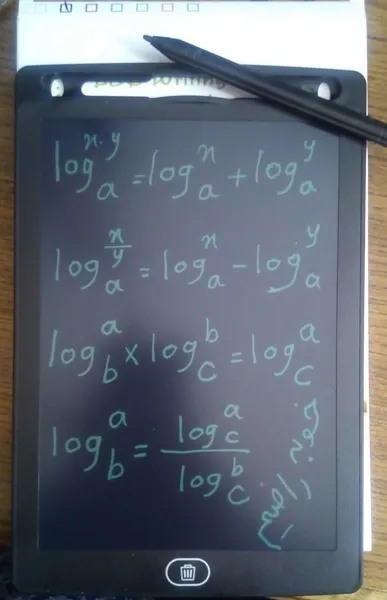 log_a^{x·y} = log_a^x + log_a^y
log_a^{x/y} = log_a^x - log_a^y
log_b^a × log_c^b = log_c^a
log_b^a = log_c^a / log_c^b